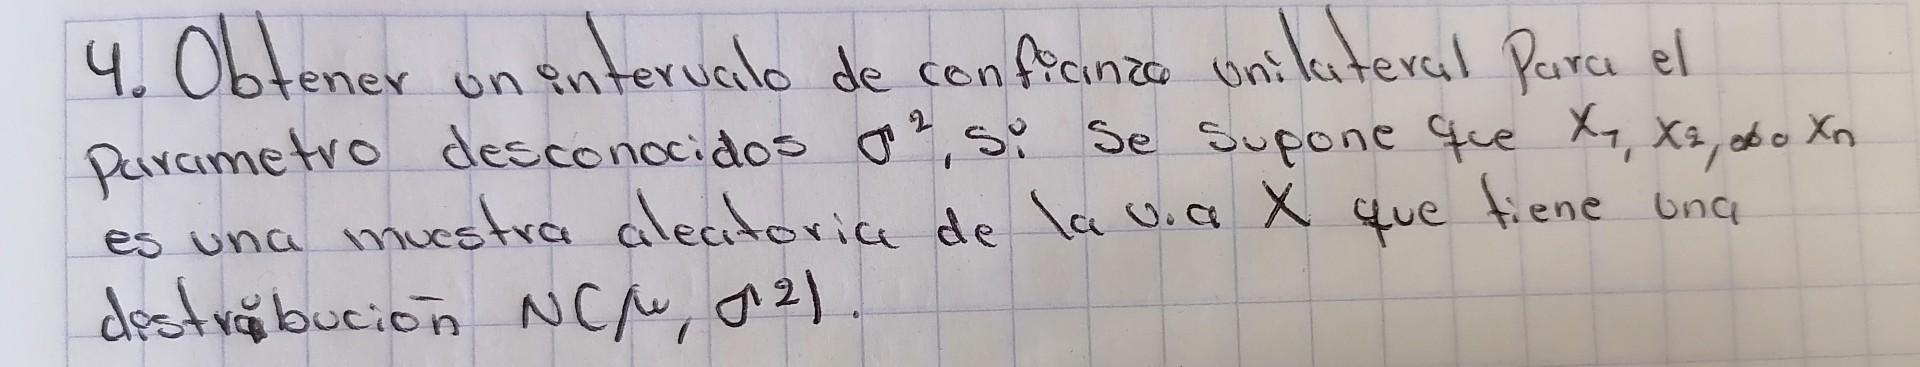 4. Obtener un intervalo de confianza unilateral Para el
parametro desconocidos σ², si se supone que X₁, X₂, ... Xn
es una muestra aleatoria de la v.a X que tiene una
distribución N(μ, σ²).